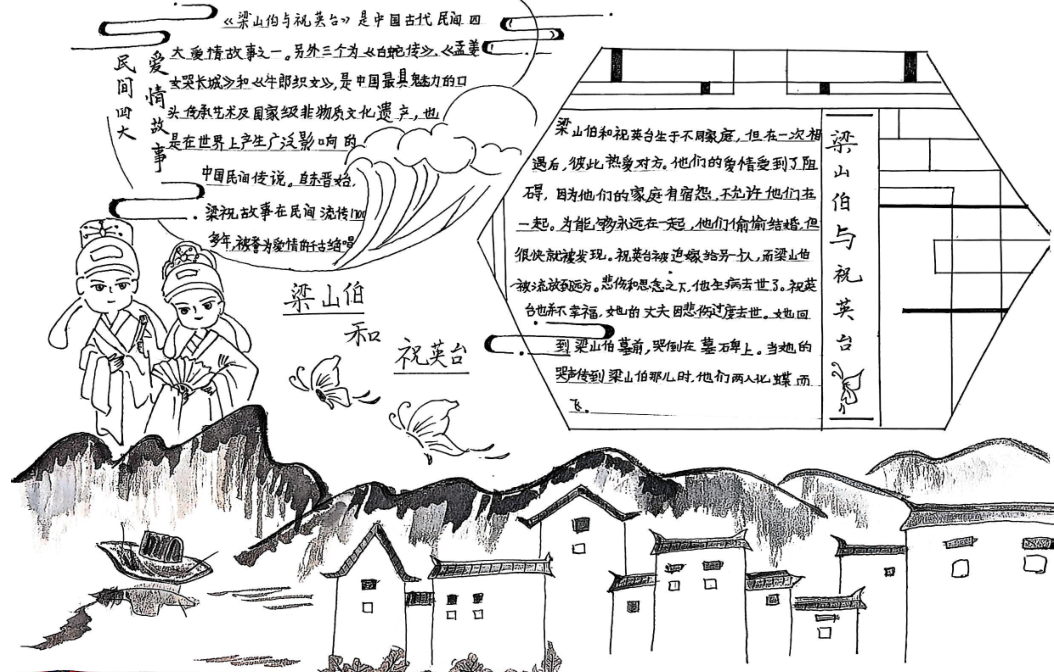 民间四大
爱情故事
《梁山伯与祝英台》是中国古代民间四
大爱情故事之一。另外三个为《白蛇传》、《孟姜
女哭长城》和《牛郎织女》,是中国最具魅力的口
头传承艺术及国家级非物质文化遗产,也
是在世界上产生广泛影响的
中国民间传说。自东晋始,
梁祝故事在民间流传1700
多年,被誉为爱情的千古绝唱
梁山伯
和
祝英台
梁山伯和祝英台生于不同家庭,但在一次相
遇后,彼此热爱对方。他们的爱情受到了阻
碍,因为他们的家庭有宿怨,不允许他们在
一起。为能够永远在一起,他们偷偷结婚,但
很快就被发现。祝英台被迫嫁给另一个人,而梁山伯
被流放到远方。悲伤和思念之下,他生病去世了。祝英
台也并不幸福,她的丈夫因悲伤过度去世。她回
到梁山伯墓前,哭倒在墓石碑上。当她的
哭声传到梁山伯那儿时,他们两人化蝶而
飞。
梁山伯与祝英台